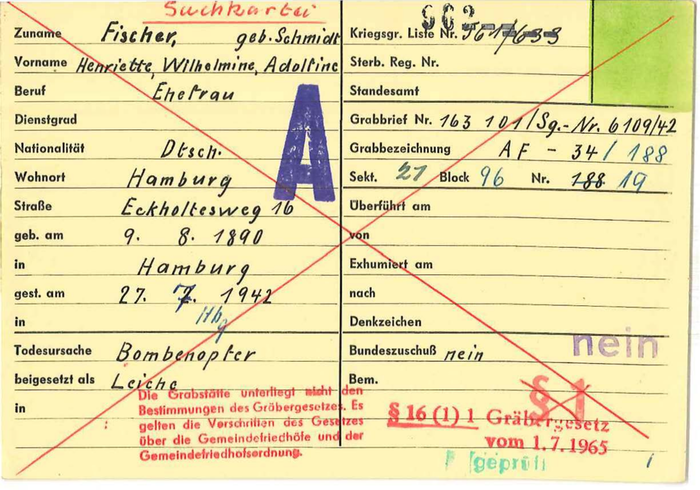 Suchkartei
Zuname Fischer, geb. Schmidt
Vorname Henriette, Wilhelmine, Adolfine
Beruf Ehefrau
Dienstgrad
Nationalität Dtsch.
Wohnort Hamburg
Straße Eckholtesweg 16
geb. am 9. 8. 1890
in Hamburg
gest. am 27. 7. 1942
in Hbg
Todesursache Bombenopfer
beigesetzt als Leiche
in
Die Grabstätte unterliegt nicht den
Bestimmungen des Gräbergesetzes. Es
gelten die Vorschriften des Gesetzes
über die Gemeindefriedhöfe und der
Gemeindefriedhofsordnung.
A
Kriegsgr. Liste Nr. 561/633
Sterb. Reg. Nr.
Standesamt
Grabbrief Nr. 163 101/Sg.-Nr. 6109/42
Grabbezeichnung AF - 34/188
Sekt. 27 Block 96 Nr. 188 19
Überführt am
von
Exhumiert am
nach
Denkzeichen
nein
Bundeszuschuß nein
Bem.
§ 1
§ 16 (1) 1 Gräbergesetz
vom 1.7.1965
geprüft